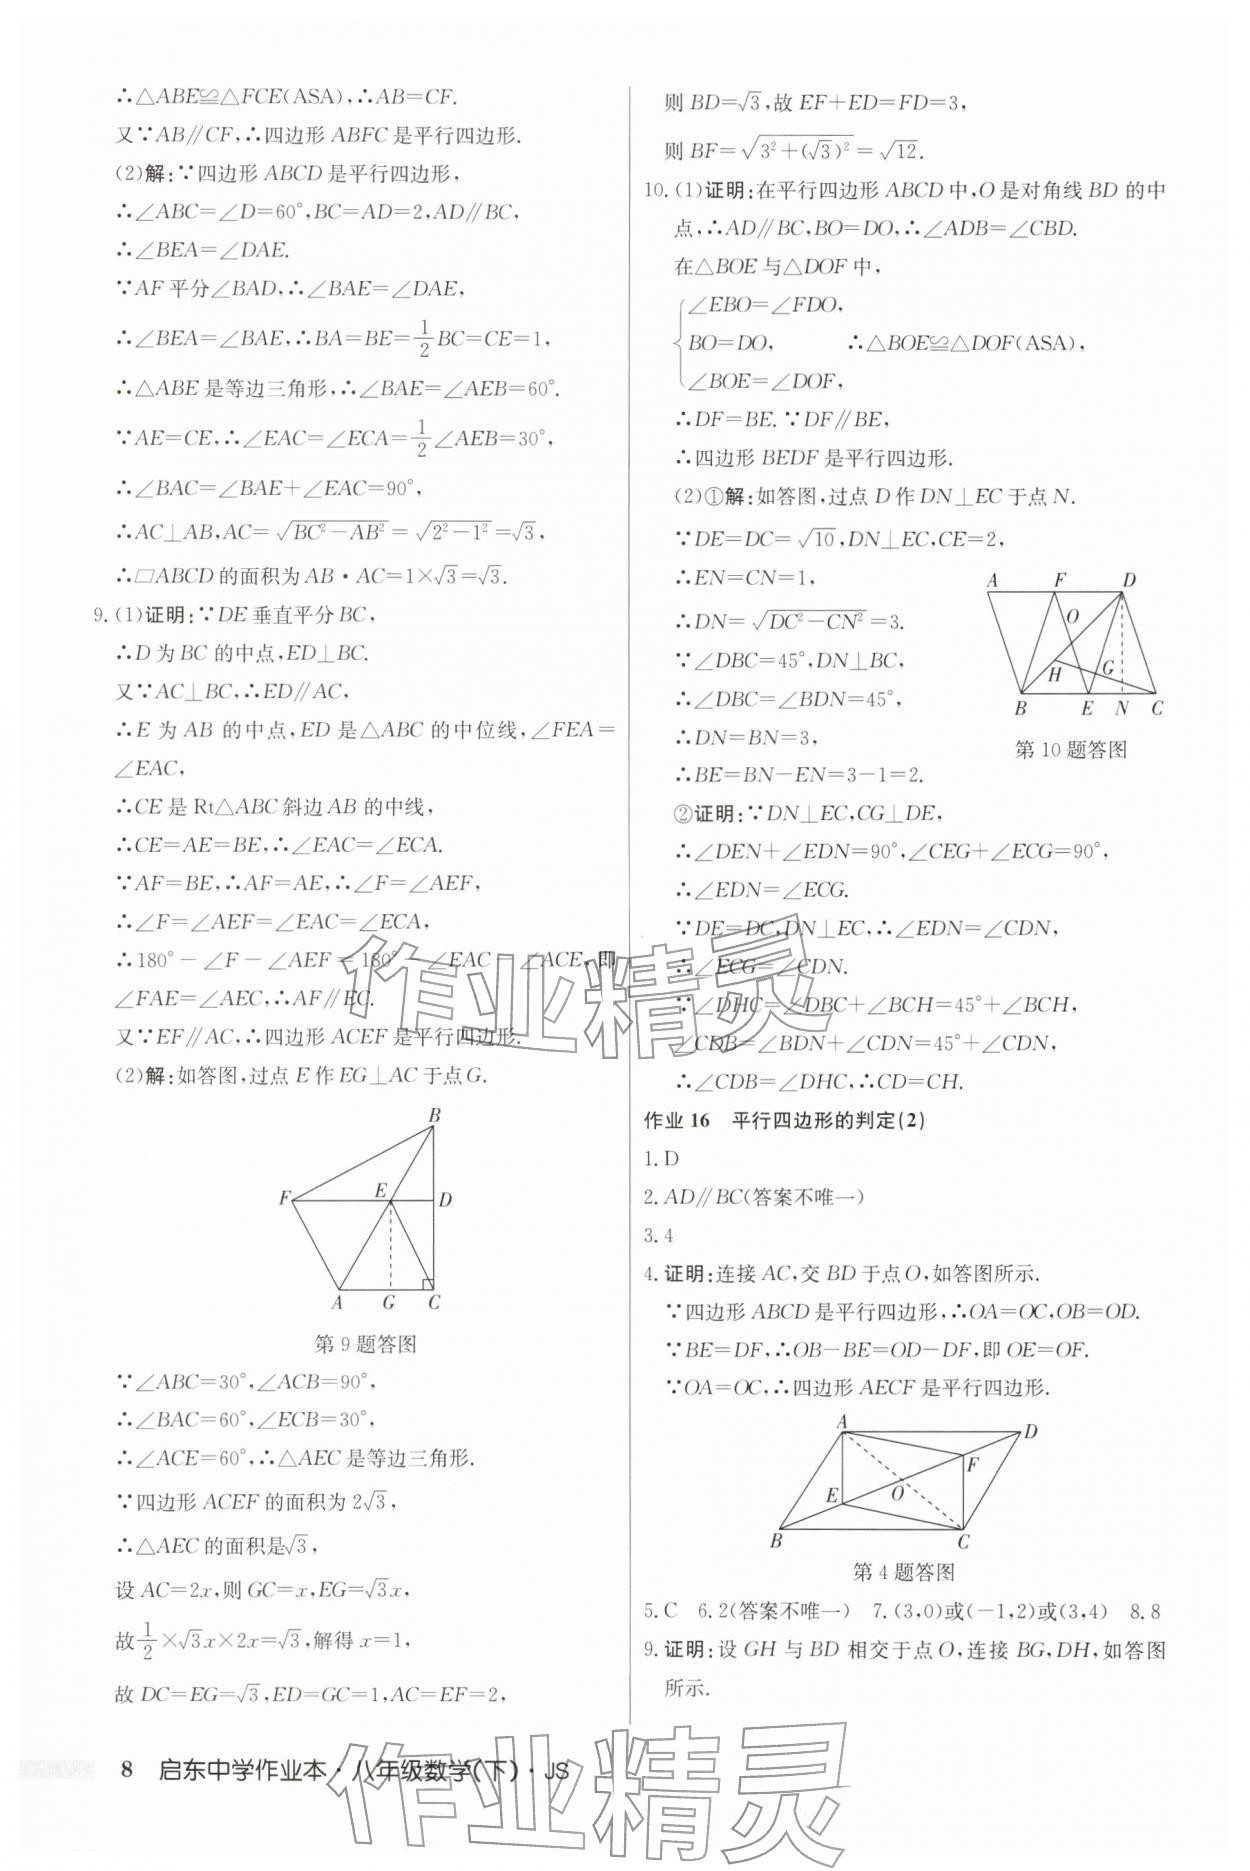 ∴△ABE≌△FCE(ASA),∴AB=CF.
又∵AB∥CF,∴四边形 ABFC 是平行四边形.
(2)解:∵四边形 ABCD 是平行四边形,
∴∠ABC=∠D=60°,BC=AD=2,AD∥BC,
∴∠BEA=∠DAE.
∵AF 平分∠BAD,∴∠BAE=∠DAE,
∴∠BEA=∠BAE,∴BA=BE=1/2BC=CE=1,
∴△ABE 是等边三角形,∴∠BAE=∠AEB=60°.
∵AE=CE,∴∠EAC=∠ECA=1/2∠AEB=30°,
∴∠BAC=∠BAE+∠EAC=90°,
∴AC⊥AB,AC=√(BC²-AB²)=√(2²-1²)=√3,
∴□ABCD 的面积为 AB·AC=1×√3=√3.
9.(1)证明:∵DE 垂直平分 BC,
∴D 为 BC 的中点,ED⊥BC.
又∵AC⊥BC,∴ED∥AC,
∴E 为 AB 的中点,ED 是△ABC 的中位线,∠FEA=
∠EAC,
∴CE 是 Rt△ABC 斜边 AB 的中线,
∴CE=AE=BE,∴∠EAC=∠ECA.
∵AF=BE,∴AF=AE,∴∠F=∠AEF,
∴∠F=∠AEF=∠EAC=∠ECA,
∴180°-∠F-∠AEF=180°-∠EAC-∠ACE,即
∠FAE=∠AEC,∴AF∥EC.
又∵EF∥AC,∴四边形 ACEF 是平行四边形.
(2)解:如答图,过点 E 作 EG⊥AC 于点 G.
B
F
E
D
A
G
C
第 9 题答图
∵∠ABC=30°,∠ACB=90°,
∴∠BAC=60°,∠ECB=30°,
∴∠ACE=60°,∴△AEC 是等边三角形.
∵四边形 ACEF 的面积为 2√3,
∴△AEC 的面积是√3,
设 AC=2x,则 GC=x,EG=√3x,
故1/2×√3x×2x=√3,解得 x=1,
故 DC=EG=√3,ED=GC=1,AC=EF=2,
则 BD=√3,故 EF+ED=FD=3,
则 BF=√(3²+(√3)²)=√12.
10.(1)证明:在平行四边形 ABCD 中,O 是对角线 BD 的中
点,∴AD∥BC,BO=DO,∴∠ADB=∠CBD.
在△BOE 与△DOF 中,
∠EBO=∠FDO,
BO=DO, ∴△BOE≌△DOF(ASA),
∠BOE=∠DOF,
∴DF=BE.∵DF∥BE,
∴四边形 BEDF 是平行四边形.
(2)①解:如答图,过点 D 作 DN⊥EC 于点 N.
∵DE=DC=√10,DN⊥EC,CE=2,
∴EN=CN=1,
∴DN=√(DC²-CN²)=3.
∵∠DBC=45°,DN⊥BC,
∴∠DBC=∠BDN=45°,
∴DN=BN=3,
∴BE=BN-EN=3-1=2.
A F D
O
H G
B E N C
第 10 题答图
②证明:∵DN⊥EC,CG⊥DE,
∴∠DEN+∠EDN=90°,∠CEG+∠ECG=90°,
∴∠EDN=∠ECG.
∵DE=DC,DN⊥EC,∴∠EDN=∠CDN,
∴∠ECG=∠CDN.
∵∠DHC=∠DBC+∠BCH=45°+∠BCH,
∠CDB=∠BDN+∠CDN=45°+∠CDN,
∴∠CDB=∠DHC,∴CD=CH.
作业 16 平行四边形的判定(2)
1.D
2.AD∥BC(答案不唯一)
3.4
4.证明:连接 AC,交 BD 于点 O,如答图所示.
∵四边形 ABCD 是平行四边形,∴OA=OC,OB=OD.
∵BE=DF,∴OB-BE=OD-DF,即 OE=OF.
∵OA=OC,∴四边形 AECF 是平行四边形.
A
D
F
E O
B C
第 4 题答图
5.C 6.2(答案不唯一) 7.(3,0)或(-1,2)或(3,4) 8.8
9.证明:设 GH 与 BD 相交于点 O,连接 BG,DH,如答图
所示.
8 启东中学作业本·八年级数学(下)·JS
作业精灵
作业精灵